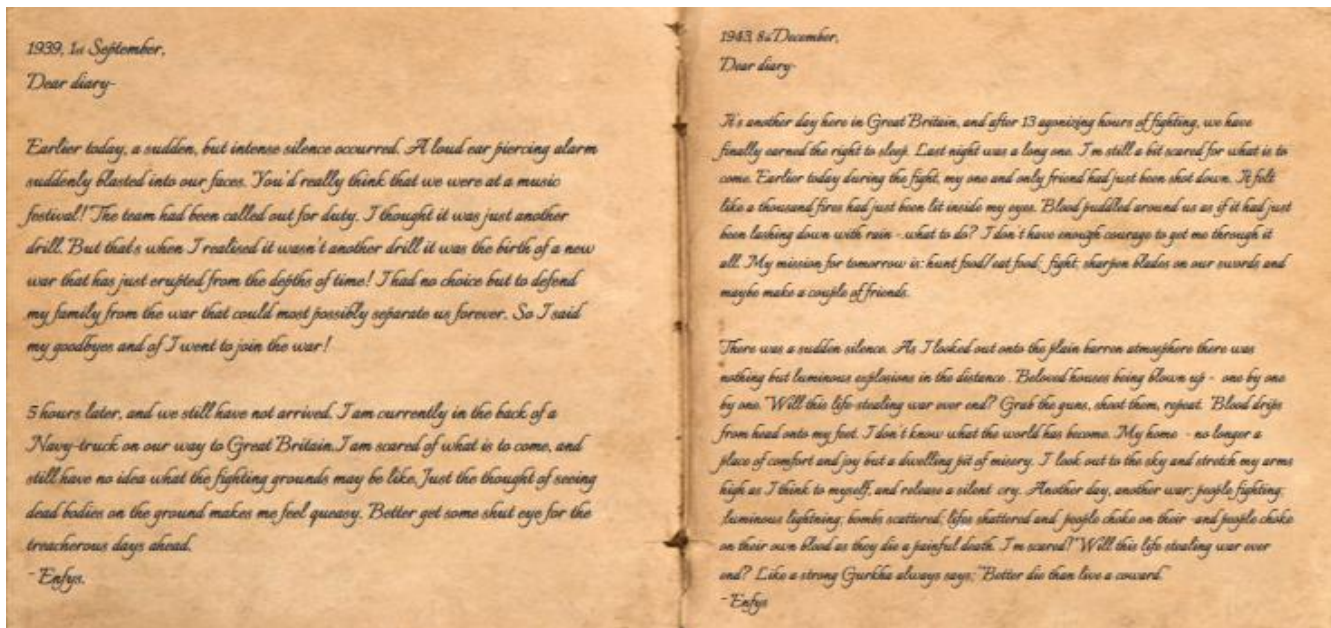 1939, 1st September,
Dear diary-
Earlier today, a sudden, but intense silence occurred. A loud ear piercing alarm
suddenly blasted into our faces. You'd really think that we were at a music
festival! The team had been called out for duty. I thought it was just another
drill. But that's when I realised it wasn't another drill it was the birth of a new
war that has just erupted from the depths of time! I had no choice but to defend
my family from the war that could most possibly separate us forever. So I said
my goodbyes and of I went to join the war!
5 hours later, and we still have not arrived. I am currently in the back of a
Navy-truck on our way to Great Britain.I am scared of what is to come, and
still have no idea what the fighting grounds may be like. Just the thought of seeing
dead bodies on the ground makes me feel queasy. Better get some shut eye for the
treacherous days ahead.
~Enfys.
1943, 8th December,
Dear diary-
It's another day here in Great Britain, and after 13 agonizing hours of fighting, we have
finally earned the right to sleep. Last night was a long one. I'm still a bit scared for what is to
come. Earlier today during the fight, my one and only friend had just been shot down. It felt
like a thousand fires had just been lit inside my eyes. Blood puddled around us as if it had just
been lashing down with rain - what to do? I don't have enough courage to get me through it
all. My mission for tomorrow is: hunt food/eat food; fight; sharpen blades on our swords and
maybe make a couple of friends.
There was a sudden silence. As I looked out onto the plain barren atmosphere there was
nothing but luminous explosions in the distance . Beloved houses being blown up - one by one
by one. Will this life-stealing war ever end? Grab the guns, shoot them, repeat. Blood drips
from head onto my feet. I don't know what the world has become. My home - no longer a
place of comfort and joy but a dwelling pit of misery. I look out to the sky and stretch my arms
high as I think to myself, and release a silent cry. Another day, another war; people fighting;
luminous lightning; bombs scattered; lifes shattered and people choke on their -and people choke
on their own blood as they die a painful death. I'm scared! Will this life stealing war ever
end? Like a strong Gurkha always says; "Better die than live a coward."
~Enfys